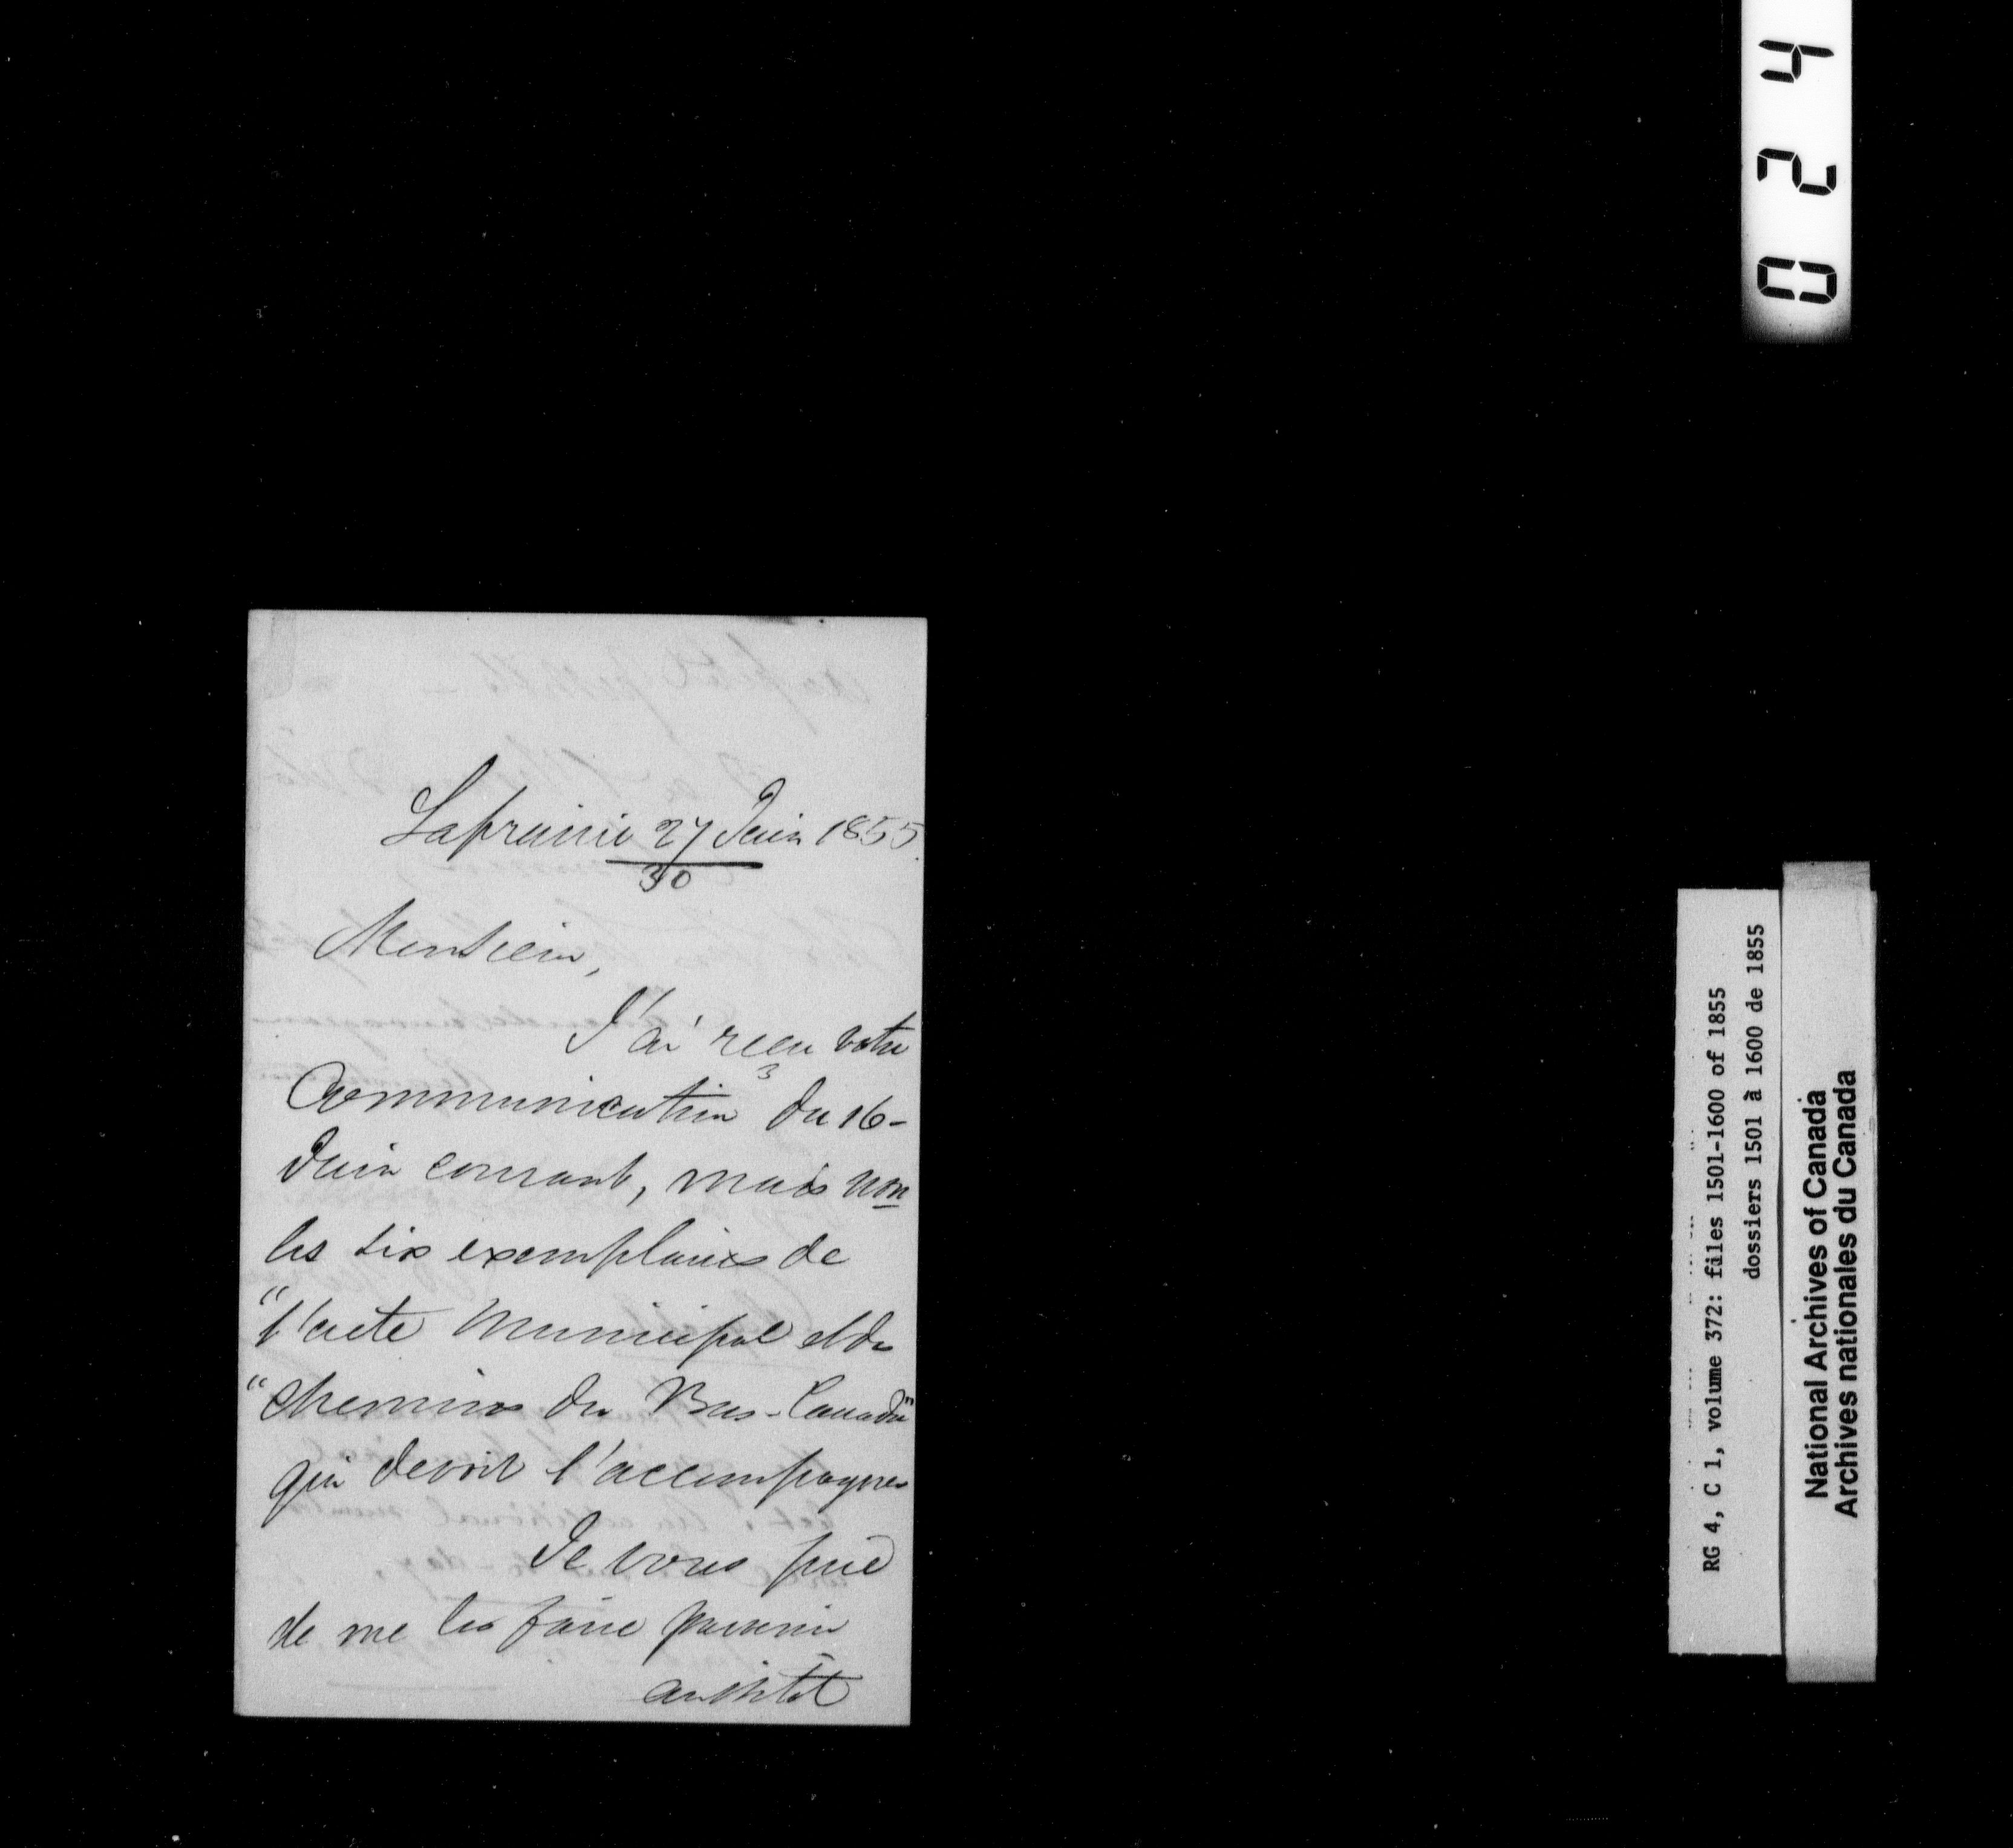 Laprairie 27 Juin 1855.
30
Monsieur,
J'ai reçu votre
Communication du 16-
Juin courant, mais non
les six exemplaires de
"l'acte Municipal et des
"chemins du Bas-Canada"
qui devoit l'accompagner
Je vous prie
de me les faire parvenir
aussitôt
024
RG 4, C 1, volume 372: files 1501-1600 of 1855
dossiers 1501 à 1600 de 1855
National Archives of Canada
Archives nationales du Canada